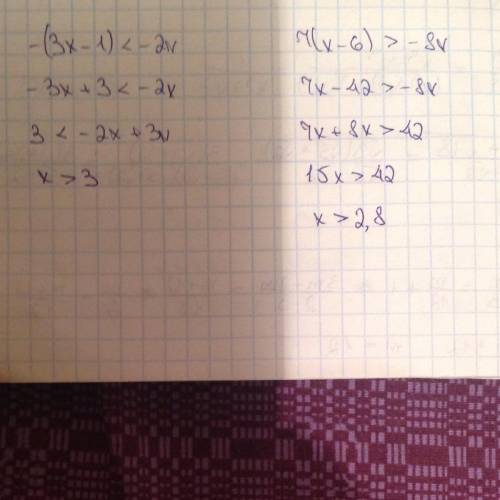 -(3x-1) < -2x
-3x+3 < -2x
3 < -2x+3x
x > 3
7(x-6) > -8x
7x-42 > -8x
7x+8x > 42
15x > 42
x > 2,8